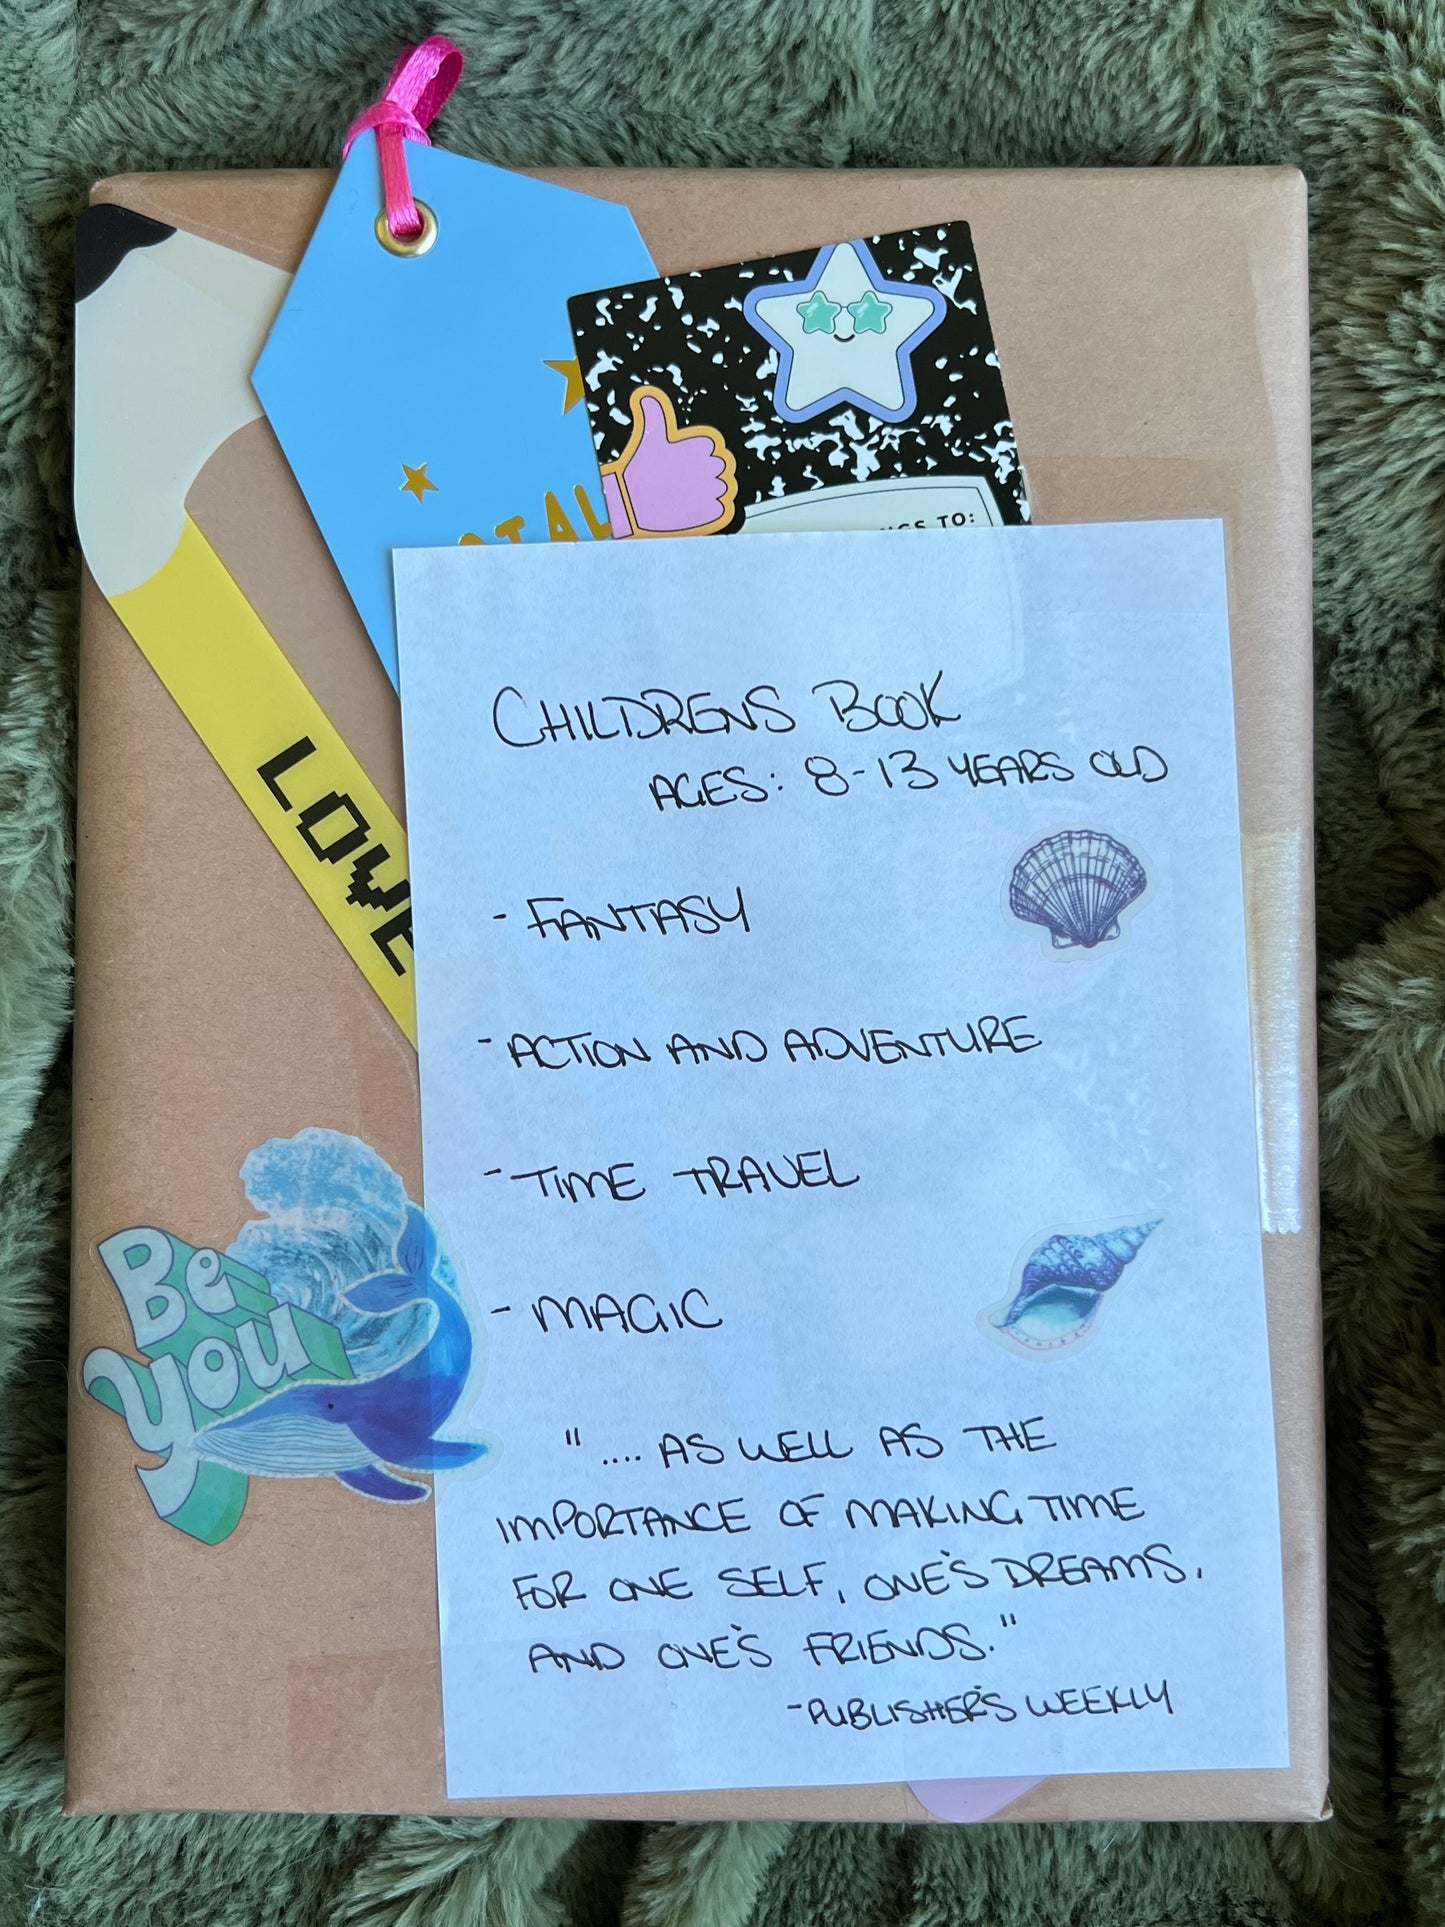 CIAL
GS TO:
LOVE
CHILDRENS BOOK
AGES: 8-13 YEARS OLD
- FANTASY
- ACTION AND ADVENTURE
- TIME TRAVEL
- MAGIC
Be
you
".... AS WELL AS THE
IMPORTANCE OF MAKING TIME
FOR ONE SELF, ONE'S DREAMS,
AND ONE'S FRIENDS."
-PUBLISHER'S WEEKLY